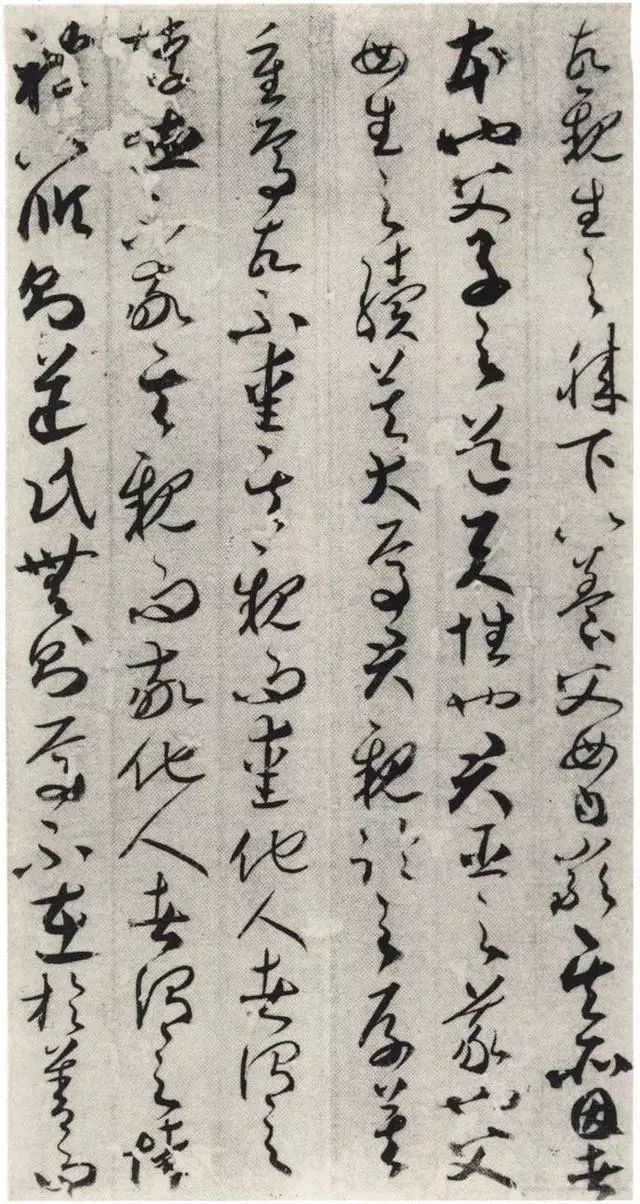 故親生之膝下以養父母日嚴其所因者
本也父子之道天性也君臣之義也父
母生之續莫大焉君親臨之厚莫
重焉故不愛其親而愛他人者謂之
悖德不敬其親而敬他人者謂之悖
禮以順則逆民無則焉不在於善而